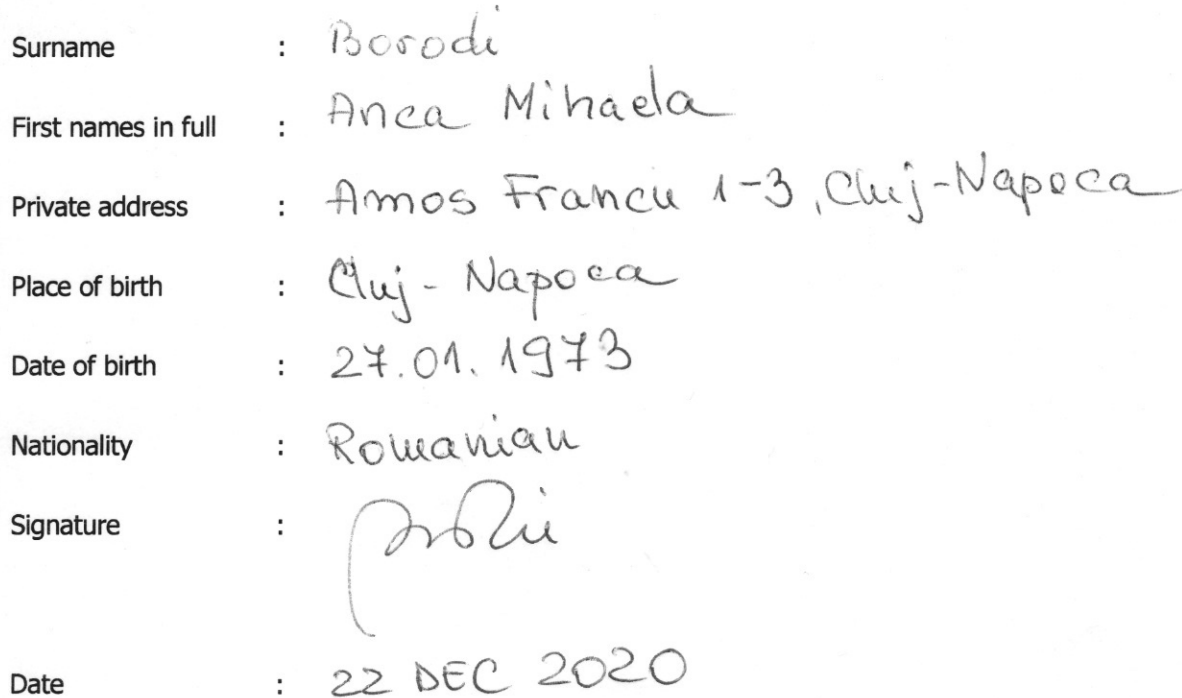 Surname : Borodi
First names in full : Anca Mihaela
Private address : Amos Francu 1-3, Cluj-Napoca
Place of birth : Cluj - Napoca
Date of birth : 27.01.1973
Nationality : Romanian
Signature :
Date : 22 DEC 2020